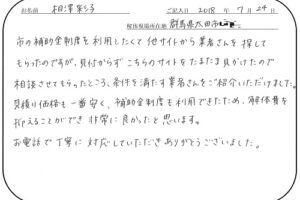 お名前 相澤 ご記入日 2018 年 7 月 24 日
解体現場所在地 群馬県太田市
市の補助金制度を利用したくて他サイトから業者さんを探して
もらったのですが、見付からずこちらのサイトをたまたま見付けたので
相談させてもらったところ、条件を満たす業者さんをご紹介いただけました。
見積り価格も一番安く、補助金制度も利用できたため、解体費を
抑えることができ非常に良かったと思います。
お電話で丁寧に対応していただきありがとうございました。